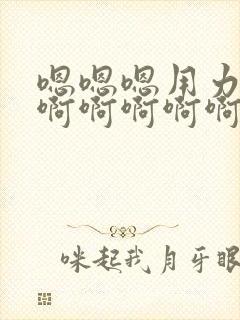 嗯嗯嗯用力
啊啊啊啊啊
咪起我月牙眼